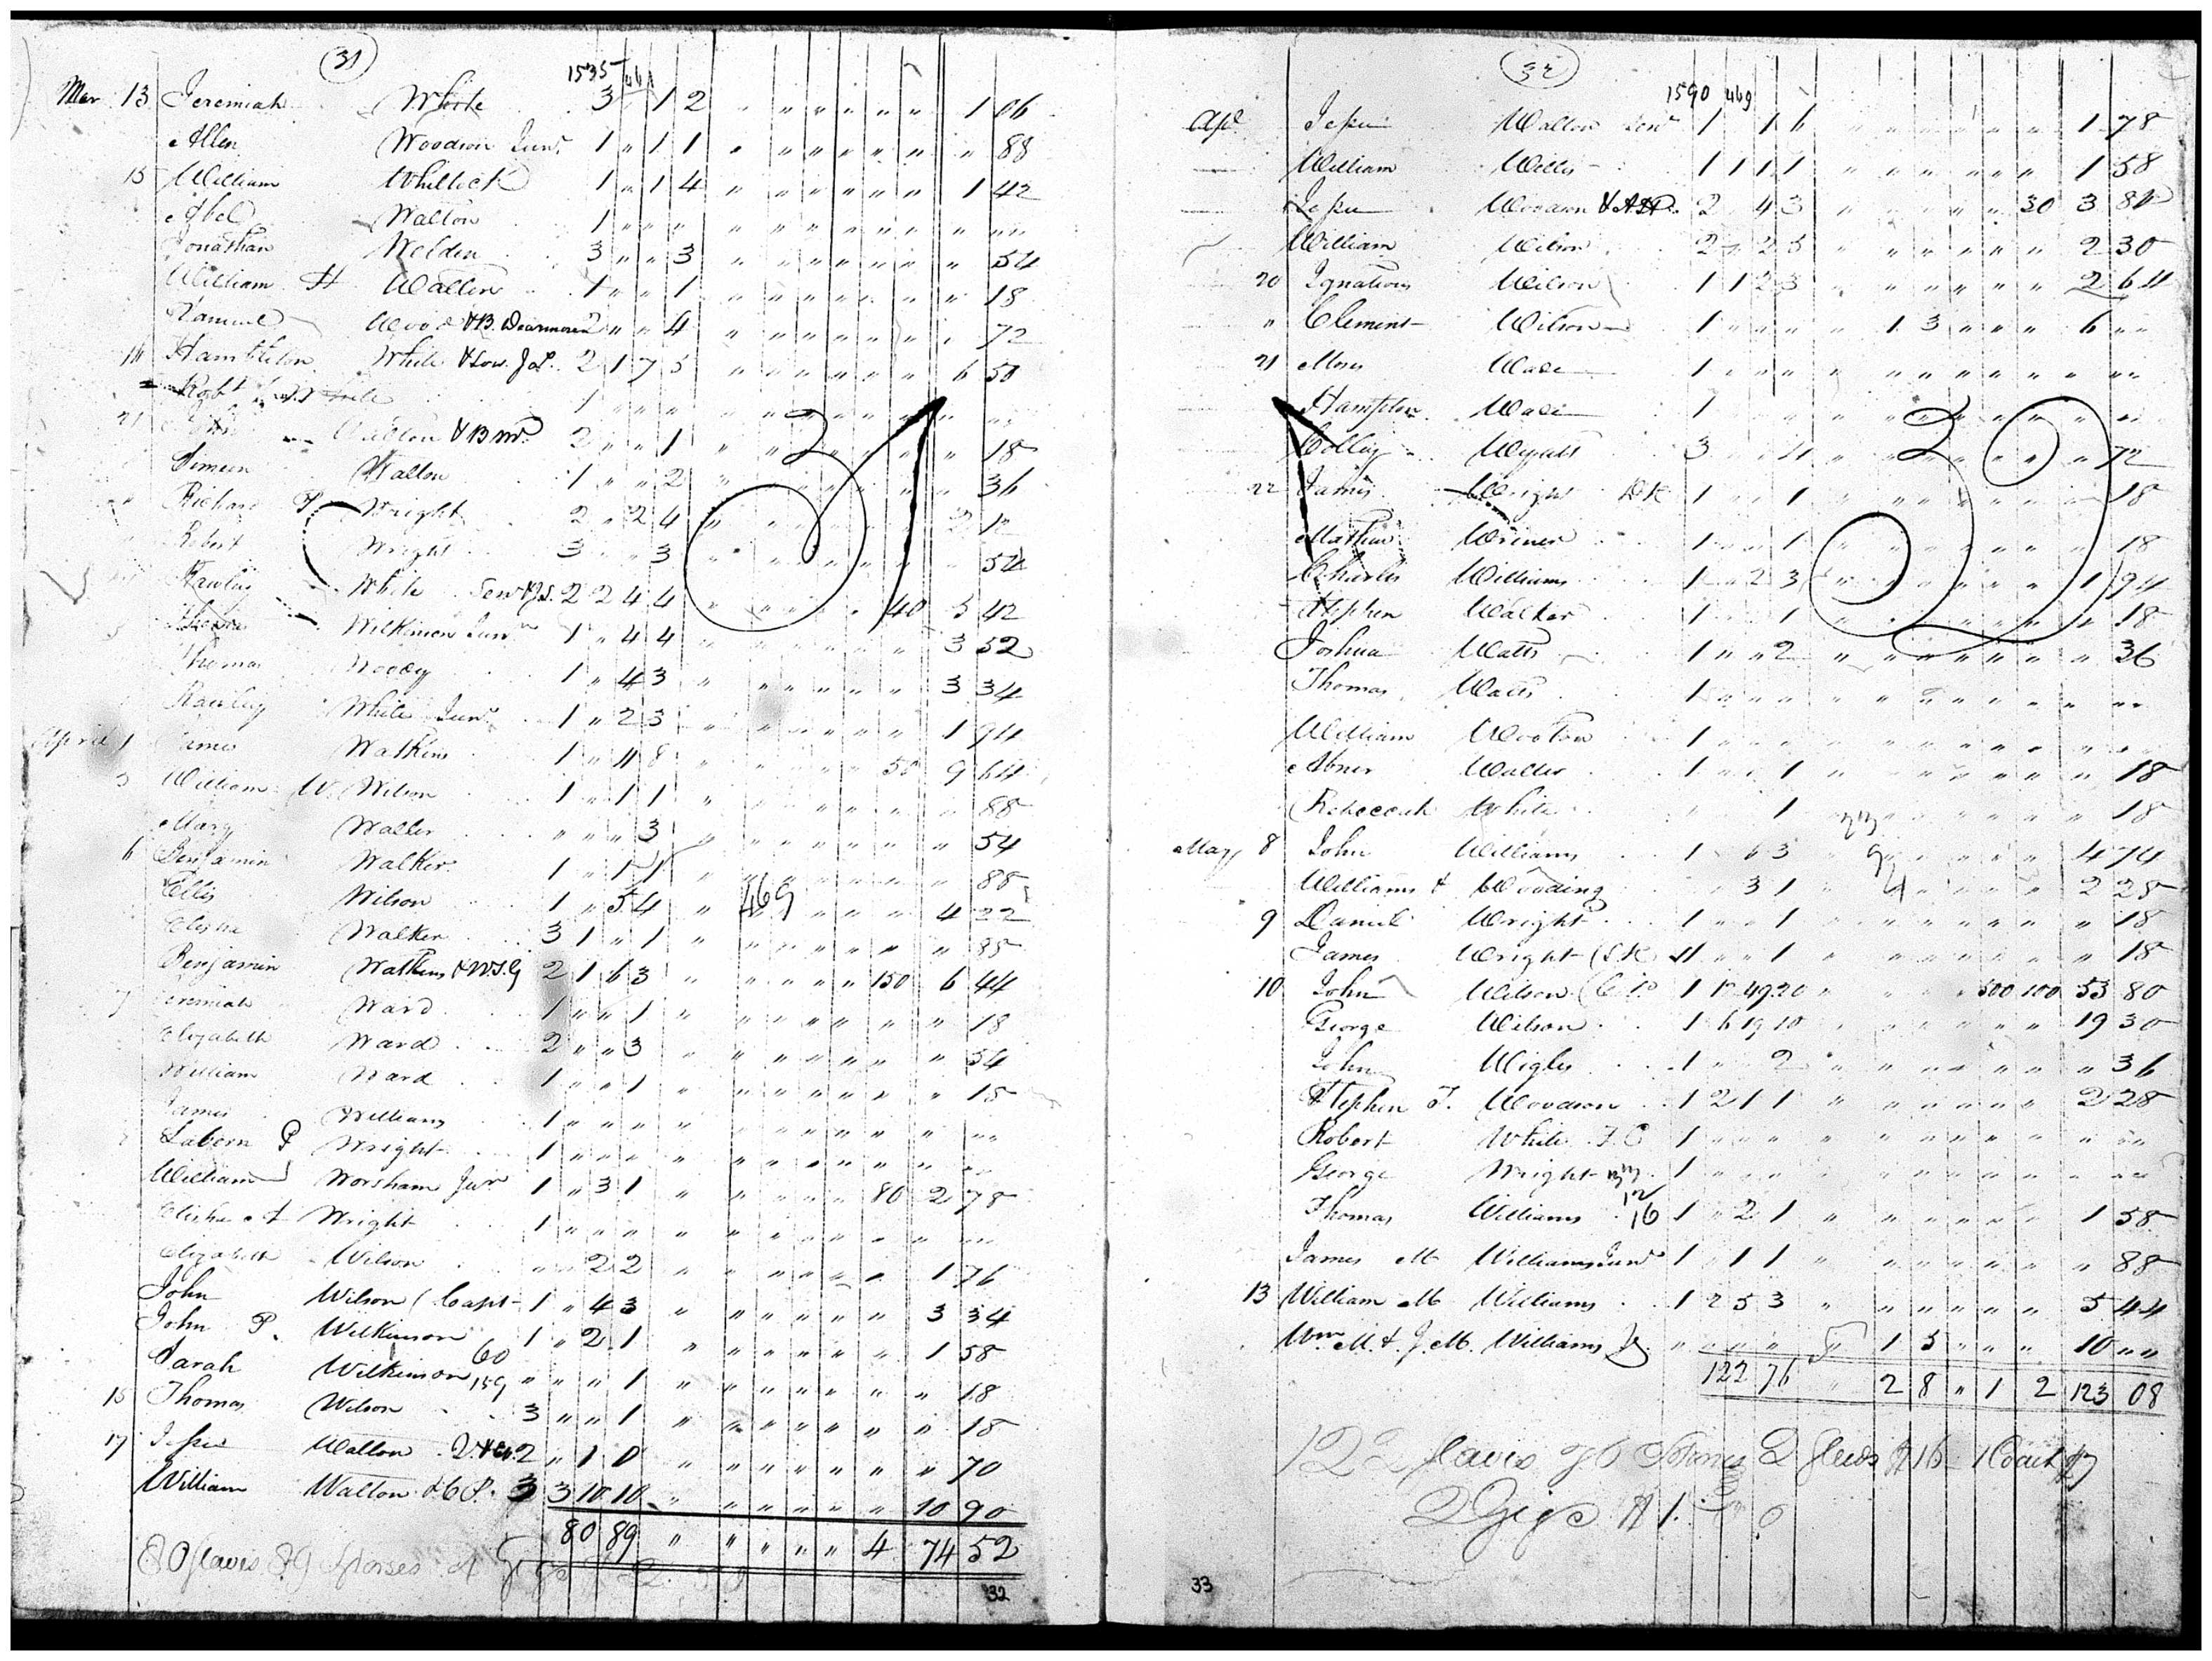 31
1535 461
Mar 13 Jeremiah White 3 " 1 2 " " " " " " " 1 06
Allen Woodson Junr 1 " 1 1 " " " " " " " " 88
15 William Whitlock 1 " 1 4 " " " " " " " 1 42
Abel Walton 1 " " " " " " " " " " " " "
Jonathan Welden 3 " " 3 " " " " " " " " 54
William H Waller 1 " " 1 " " " " " " " " 18
Samuel Wood & B. Dearmore 2 " " 4 " " " " " " " " 72
16 Hambleton White & Son. J L. 2 1 7 5 " " " " " " " 6 50
Robt White 1 " " " " " " " " " " " " "
21 Walton & B M. 2 " " 1 " " " " " " " " 18
Simeon Walton 1 " " 2 " " " " " " " " 36
Richard P Wright 2 " 2 4 " " " " " " " 2 12
Robert Wright 3 " " 3 " " " " " " " " 54
Rawley White Senr & J S. 2 2 4 4 " " " " " " 40 5 42
Thomas Wilkinson Junr 1 " 4 4 " " " " " " " 3 52
Thomas Moody 1 " 4 3 " " " " " " " 3 34
Rawley White Junr 1 " 2 3 " " " " " " " 1 94
April 1 James Watkins 1 " 4 8 " " " " " " 50 9 64
3 William W. Wilson 1 " 1 1 " " " " " " " " 88
Mary Waller " " " 3 " " " " " " " " 54
6 Benjamin Walker 1 " 1 1 " " " " " " " " 88
Ellis Wilson 1 " 5 4 " 469 " " " " " 4 22
Elisha Walker 3 1 " 1 " " " " " " " " 88
Benjamin Watkins & W.S.G 2 1 6 3 " " " " " " 150 6 44
7 Jeremiah Ward 1 " " 1 " " " " " " " " 18
Elizabeth Ward 2 " " 3 " " " " " " " " 54
William Ward 1 " " 1 " " " " " " " " 18
James Williams 1 " " " " " " " " " " " " "
Labern P Wright 1 " " " " " " " " " " " " "
William Worsham Junr 1 " 3 1 " " " " " " 80 2 78
Elisha A Wright 1 " " " " " " " " " " " " "
Elizabeth Wilson " " 2 2 " " " " " " " 1 76
John Wilson (Capt 1 " 4 3 " " " " " " " 3 34
John P. Wilkinson 1 " 2 1 " " " " " " " 1 58
Sarah Wilkinson 60 159 " " " 1 " " " " " " " " 18
15 Thomas Wilson 3 " " 1 " " " " " " " " 18
17 Jesse Walton 2 " 1 0 " " " " " " " " 70
William Walton & C P. 3 3 10 10 " " " " " " " 10 90
80 89 " " " " " 4 74 52
80 slaves 89 Horses 4 Gigs
32
32
1590 469
Apl Jesse Walton Senr 1 " 1 6 " " " " " " " 1 78
William Willis 1 1 1 1 " " " " " " " 1 58
Jesse Woodson & ASP. 2 " 4 3 " " " " " " 30 3 84
William Wilson 2 " 2 5 " " " " " " " 2 30
20 Ignatious Wilson 1 1 2 3 " " " " " " " 2 64
" Clement Wilson 1 " " " " 1 3 " " " 6 " "
21 Moses Wade 1 " " " " " " " " " " " " "
Hampton Wade 1 " " " " " " " " " " " " "
Colley Wyatt 3 " " 4 " " " " " " " " 72
22 James Wright DK 1 " " 1 " " " " " " " " 18
Mathew Wriner 1 " " 1 " " " " " " " " 18
Charles Williams 1 " 2 3 " " " " " " " 1 94
Stephen Walker 1 " " 1 " " " " " " " " 18
Joshua Watts 1 " " 2 " " " " " " " " 36
Thomas Watts 1 " " " " " " " " " " " " "
William Wooton 1 " " " " " " " " " " " " "
Abner Waller 1 " " 1 " " " " " " " " 18
Rebeccah White 1 " " " " " " " 18
May 8 John Williams 1 " 6 3 " " " " " " " 4 74
Williams & Wooding 3 1 " " " " " " " 2 28
9 Daniel Wright 1 " " 1 " " " " " " " " 18
James Wright (S.K 1 " " 1 " " " " " " " " 18
10 John Wilson 1 12 49 20 " " " " 500 100 53 80
George Wilson 1 6 19 10 " " " " " " " 19 30
John Wigley 1 " " 2 " " " " " " " " 36
Stephen T. Woodson 1 2 1 1 " " " " " " " 2 28
Robert White F. C 1 " " " " " " " " " " " " "
George Wright 1 " " " " " " " " " " " " "
Thomas Williams 16 1 " 2 1 " " " " " " " 1 58
James M Williams Junr 1 " 1 1 " " " " " " " " 88
13 William M Williams 1 2 5 3 " " " " " " " 5 44
Wm M. & J. M. Williams " " " " " 1 5 " " " 10 " "
122 76 " 2 8 " 1 2 123 08
122 slaves 76 Horses 2 $16 1 Coach
2 Gigs
33